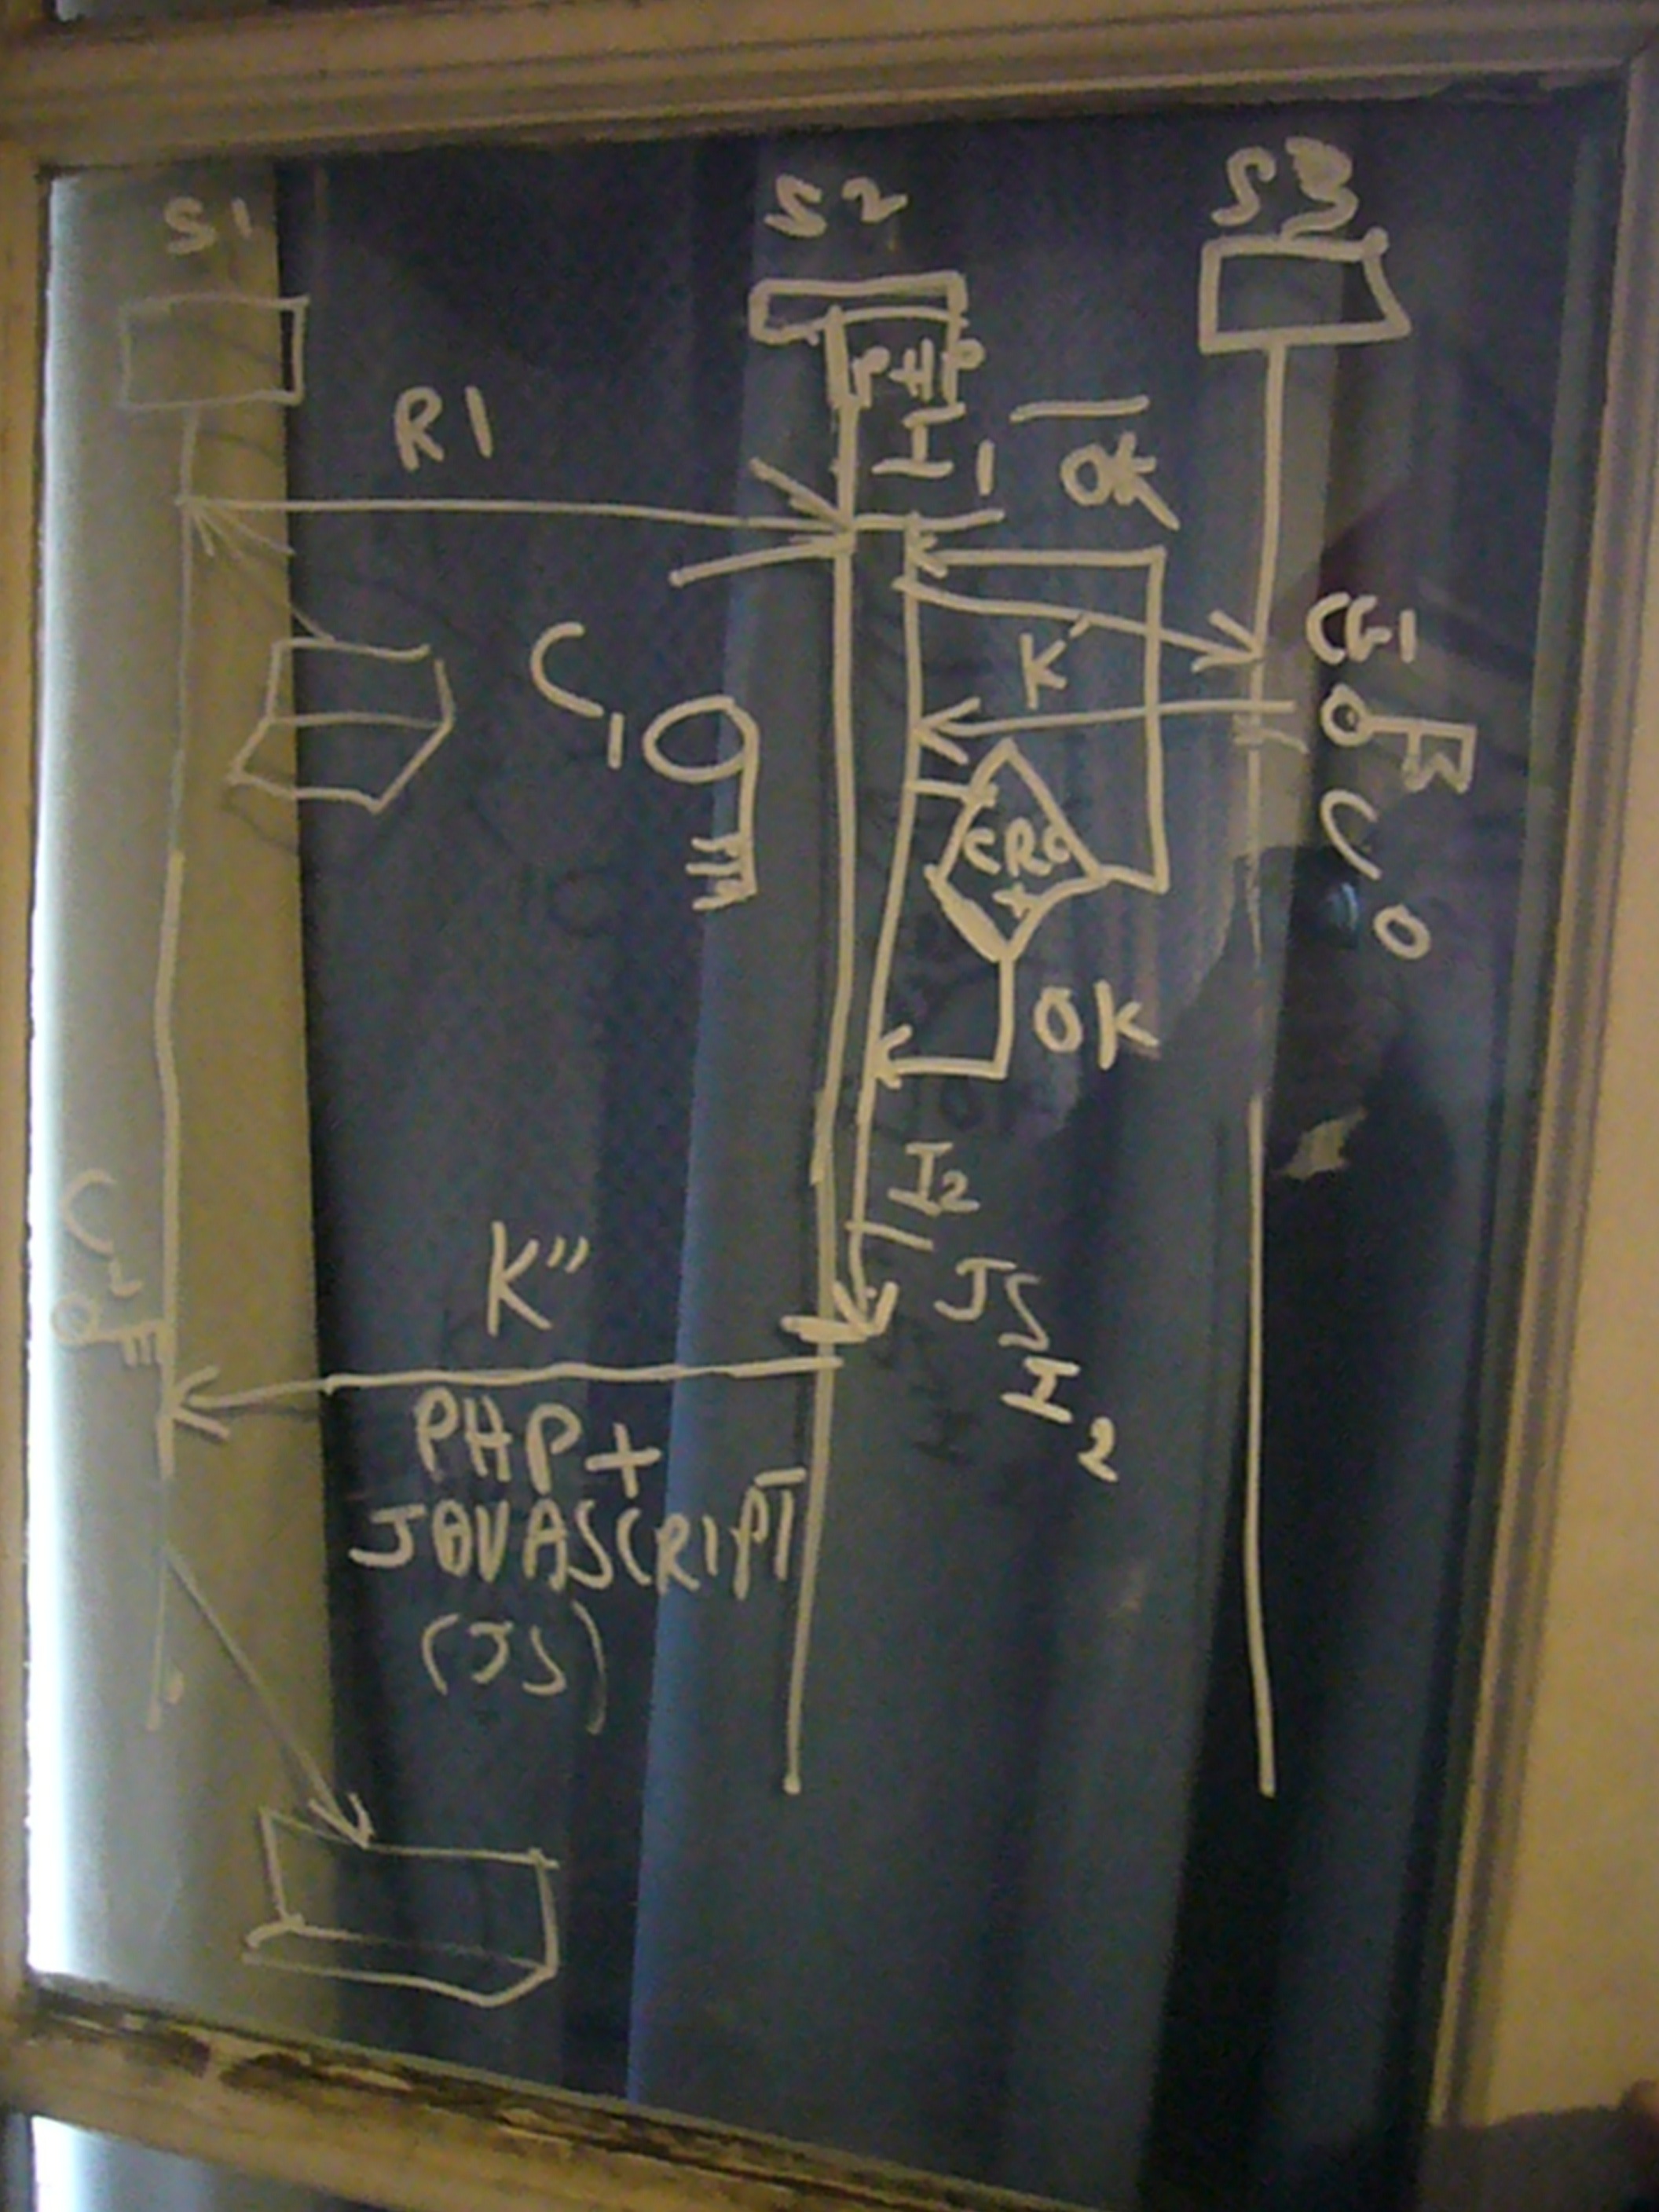 S1
S2
S3
PHP
R1
I1
OK
CGI
K'
C1
C0
CRC
OK
I2
C2
K"
JS
I2
PHP +
JAVASCRIPT
(JS)